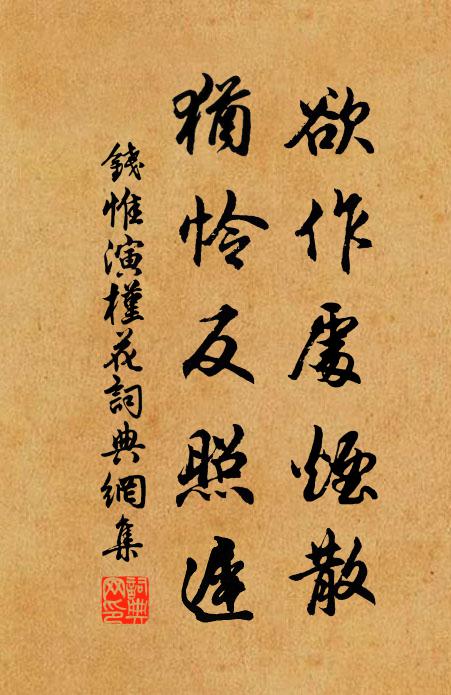 欲作處煙散
猶憐反照遲
錢惟演槿花詞典網集
詞典網印